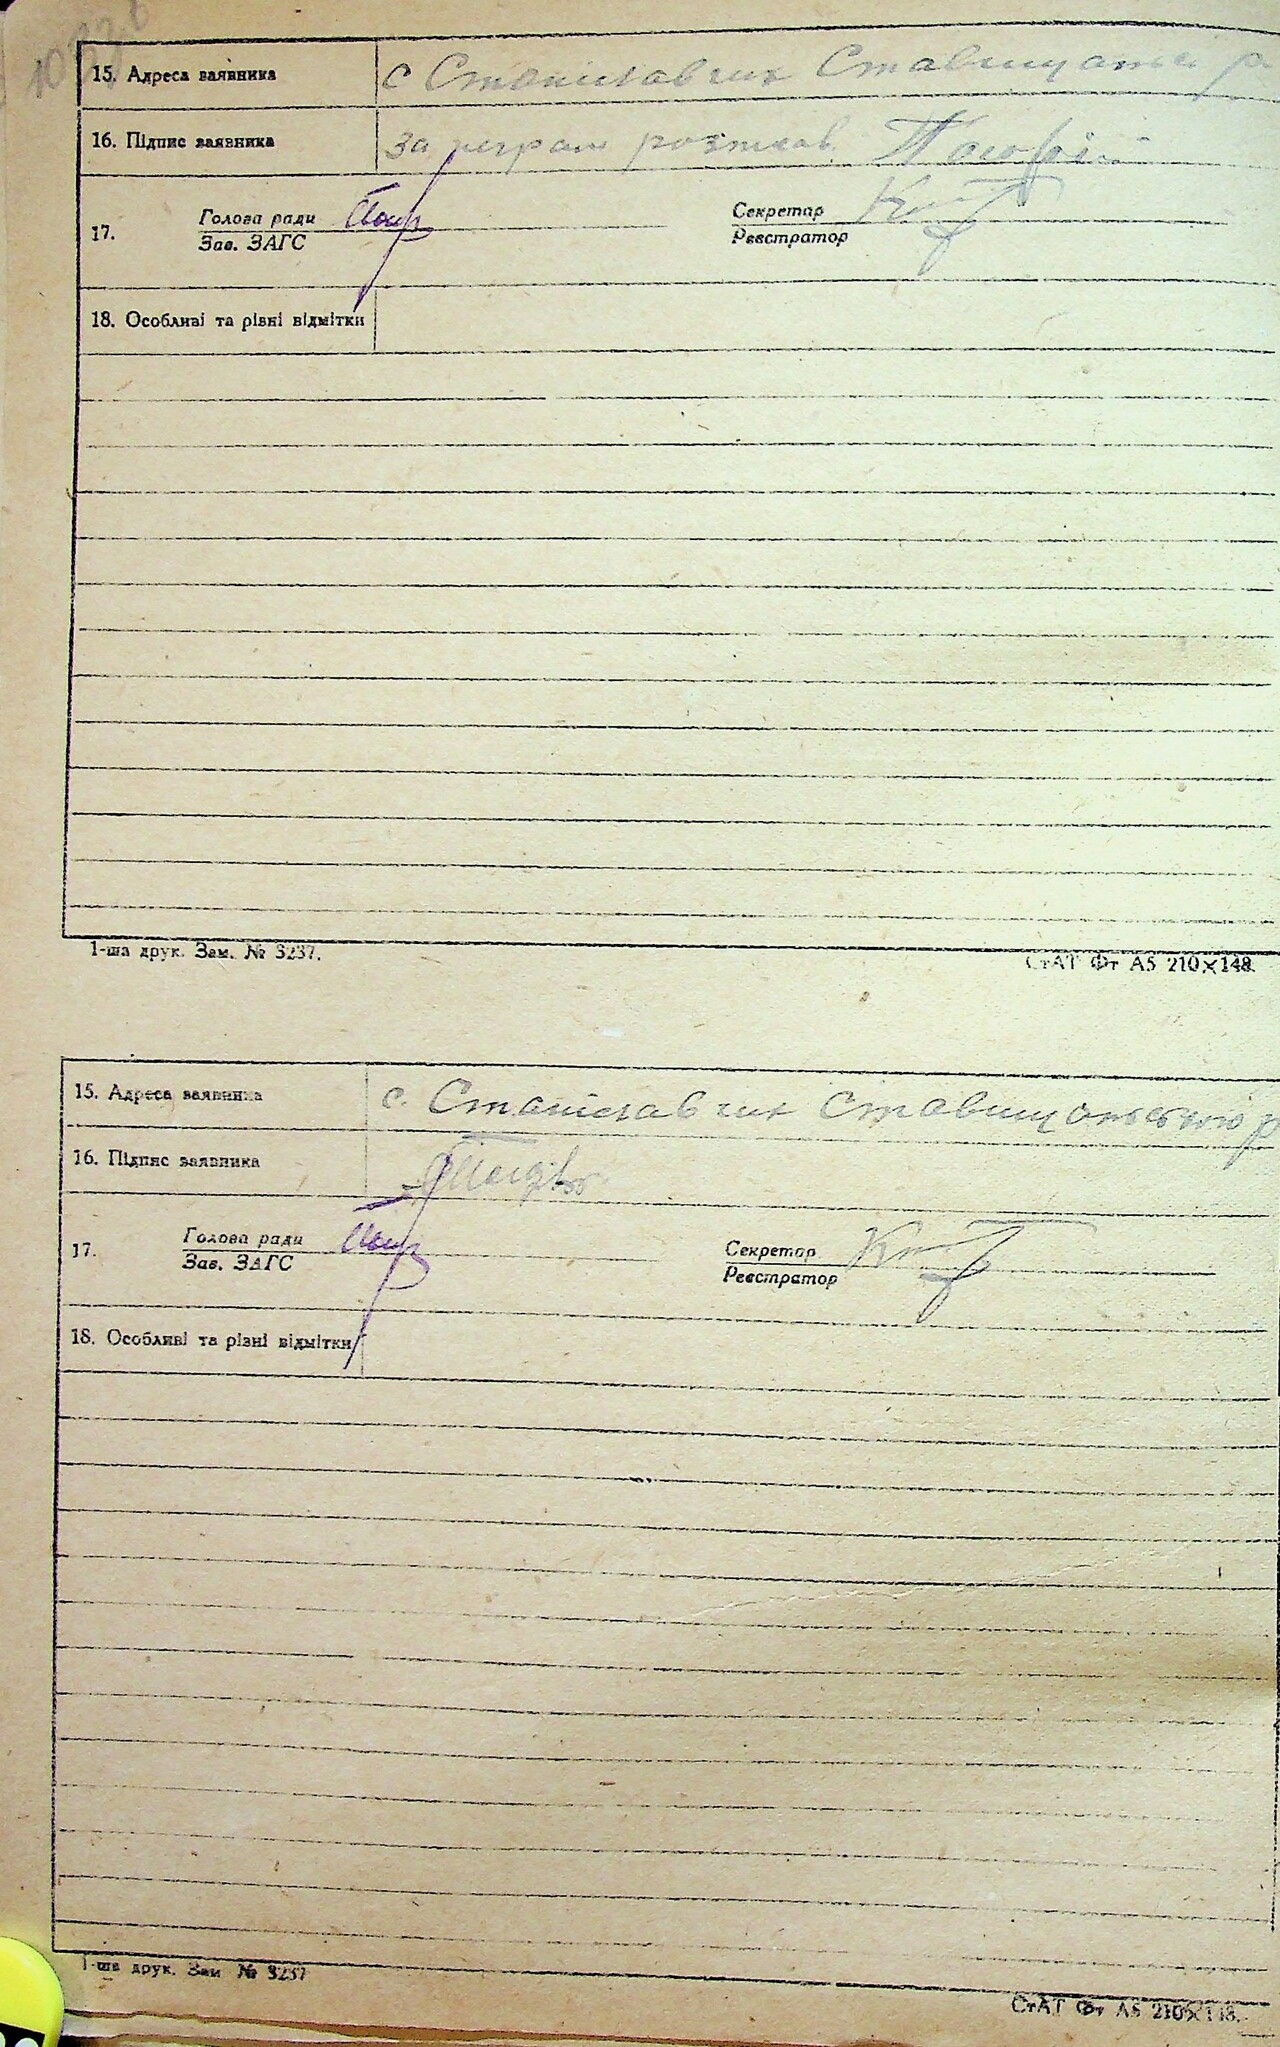 15. Адреса заявника с Станіславчик Ставищанськ р
16. Підпис заявника За неграм розписав
17. Голова ради Секретар
Зав. ЗАГС Реєстратор
18. Особливі та рівні відмітки
1-ша друк. Зам. № 3237. СтАТ Фт А5 210×148.
15. Адреса заявника с. Станіславчик Ставищанського р
16. Підпис заявника
17. Голова ради Секретар
Зав. ЗАГС Реєстратор
18. Особливі та різні відмітки
1-ша друк. Зам № 3237 СтАТ Фт А5 210×148.